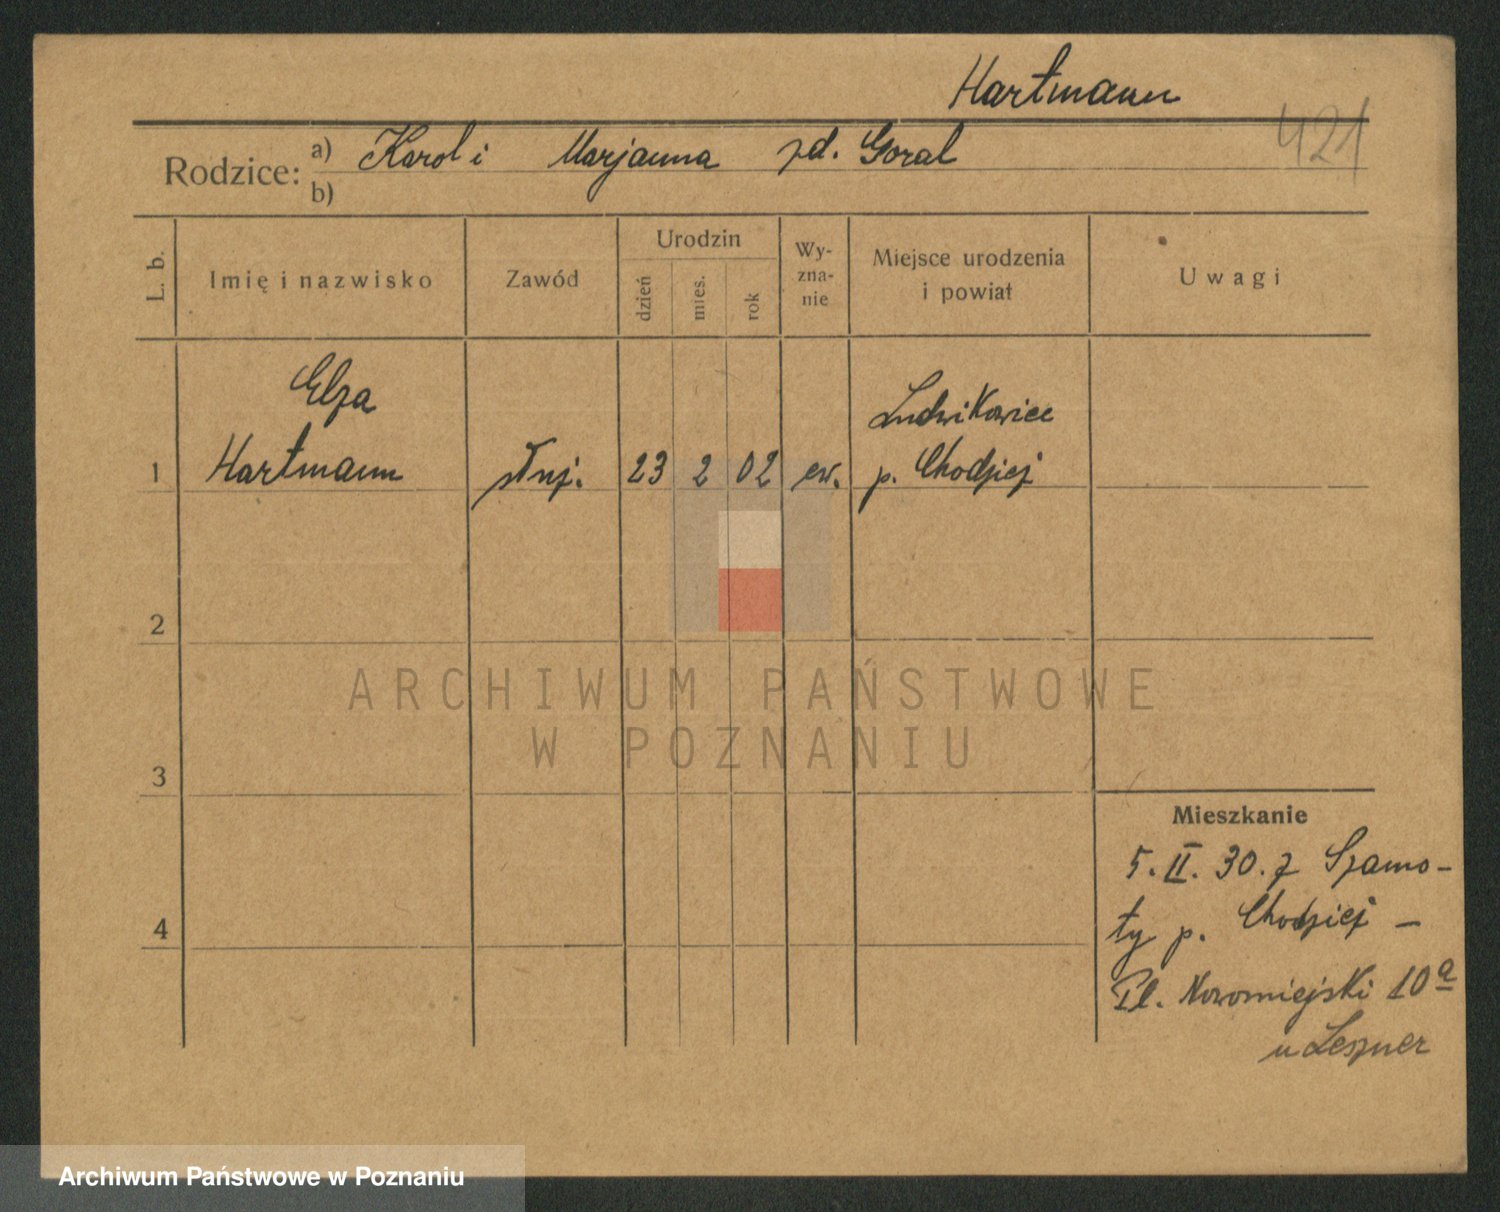 Hartmann
421
Rodzice: a) Karol i Marjanna zd. Goral
b)
L. b.
Imię i nazwisko
Zawód
Urodzin
dzień
mies.
rok
Wy-
zna-
nie
Miejsce urodzenia
i powiat
Uwagi
Elza
Ludwikowice
1 Hartmann służ. 23 2 02 ew. p. Chodzież
2
3
4
Mieszkanie
5. II. 30. z Szamo-
ty p. Chodzież –
Pl. Nowomiejski 10a
u Leszner
ARCHIWUM PAŃSTWOWE
W POZNANIU
Archiwum Państwowe w Poznaniu